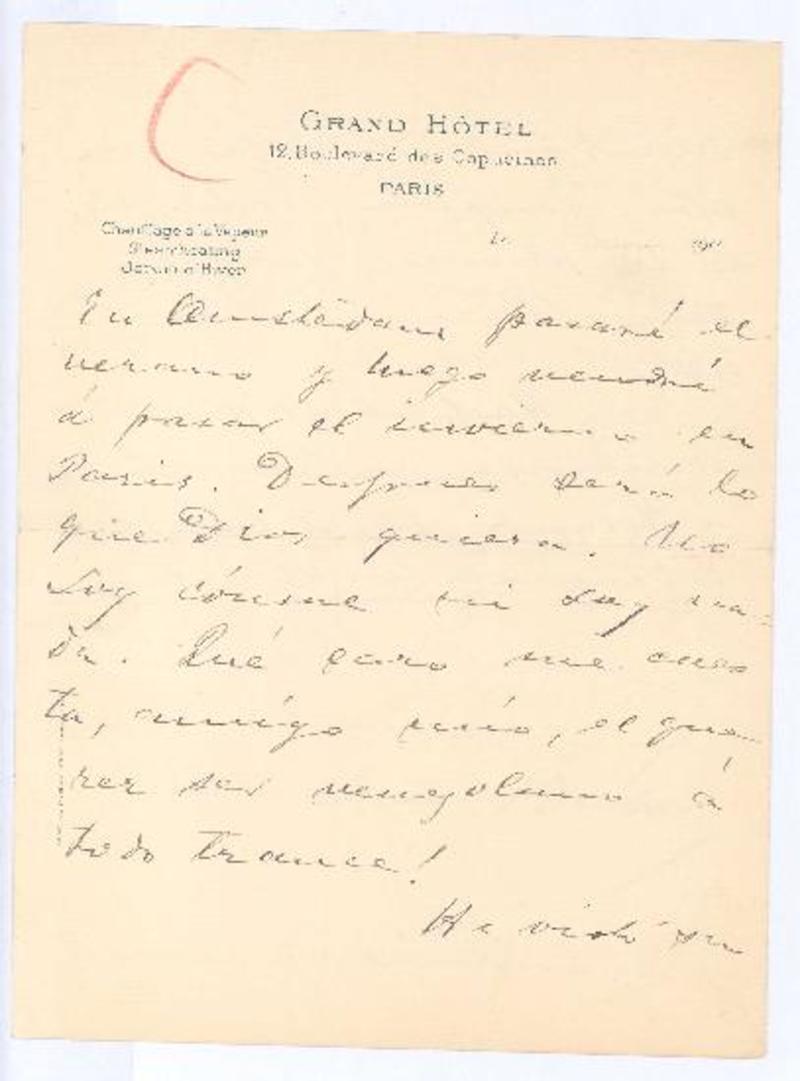 GRAND HÔTEL
12, Boulevard des Capucines
PARIS
Chauffage à la Vapeur
Steamheating
Jardin d'Hiver
190
En Amsterdam pasaré el
verano y luego vendré
á pasar el invierno en
Paris. Despues será lo
que Dios quiera. No
soy cónsul ni soy na-
da. Qué caro me cues
ta, amigo mío, el que-
rer ser venezolano á
todo trance!
He visto su